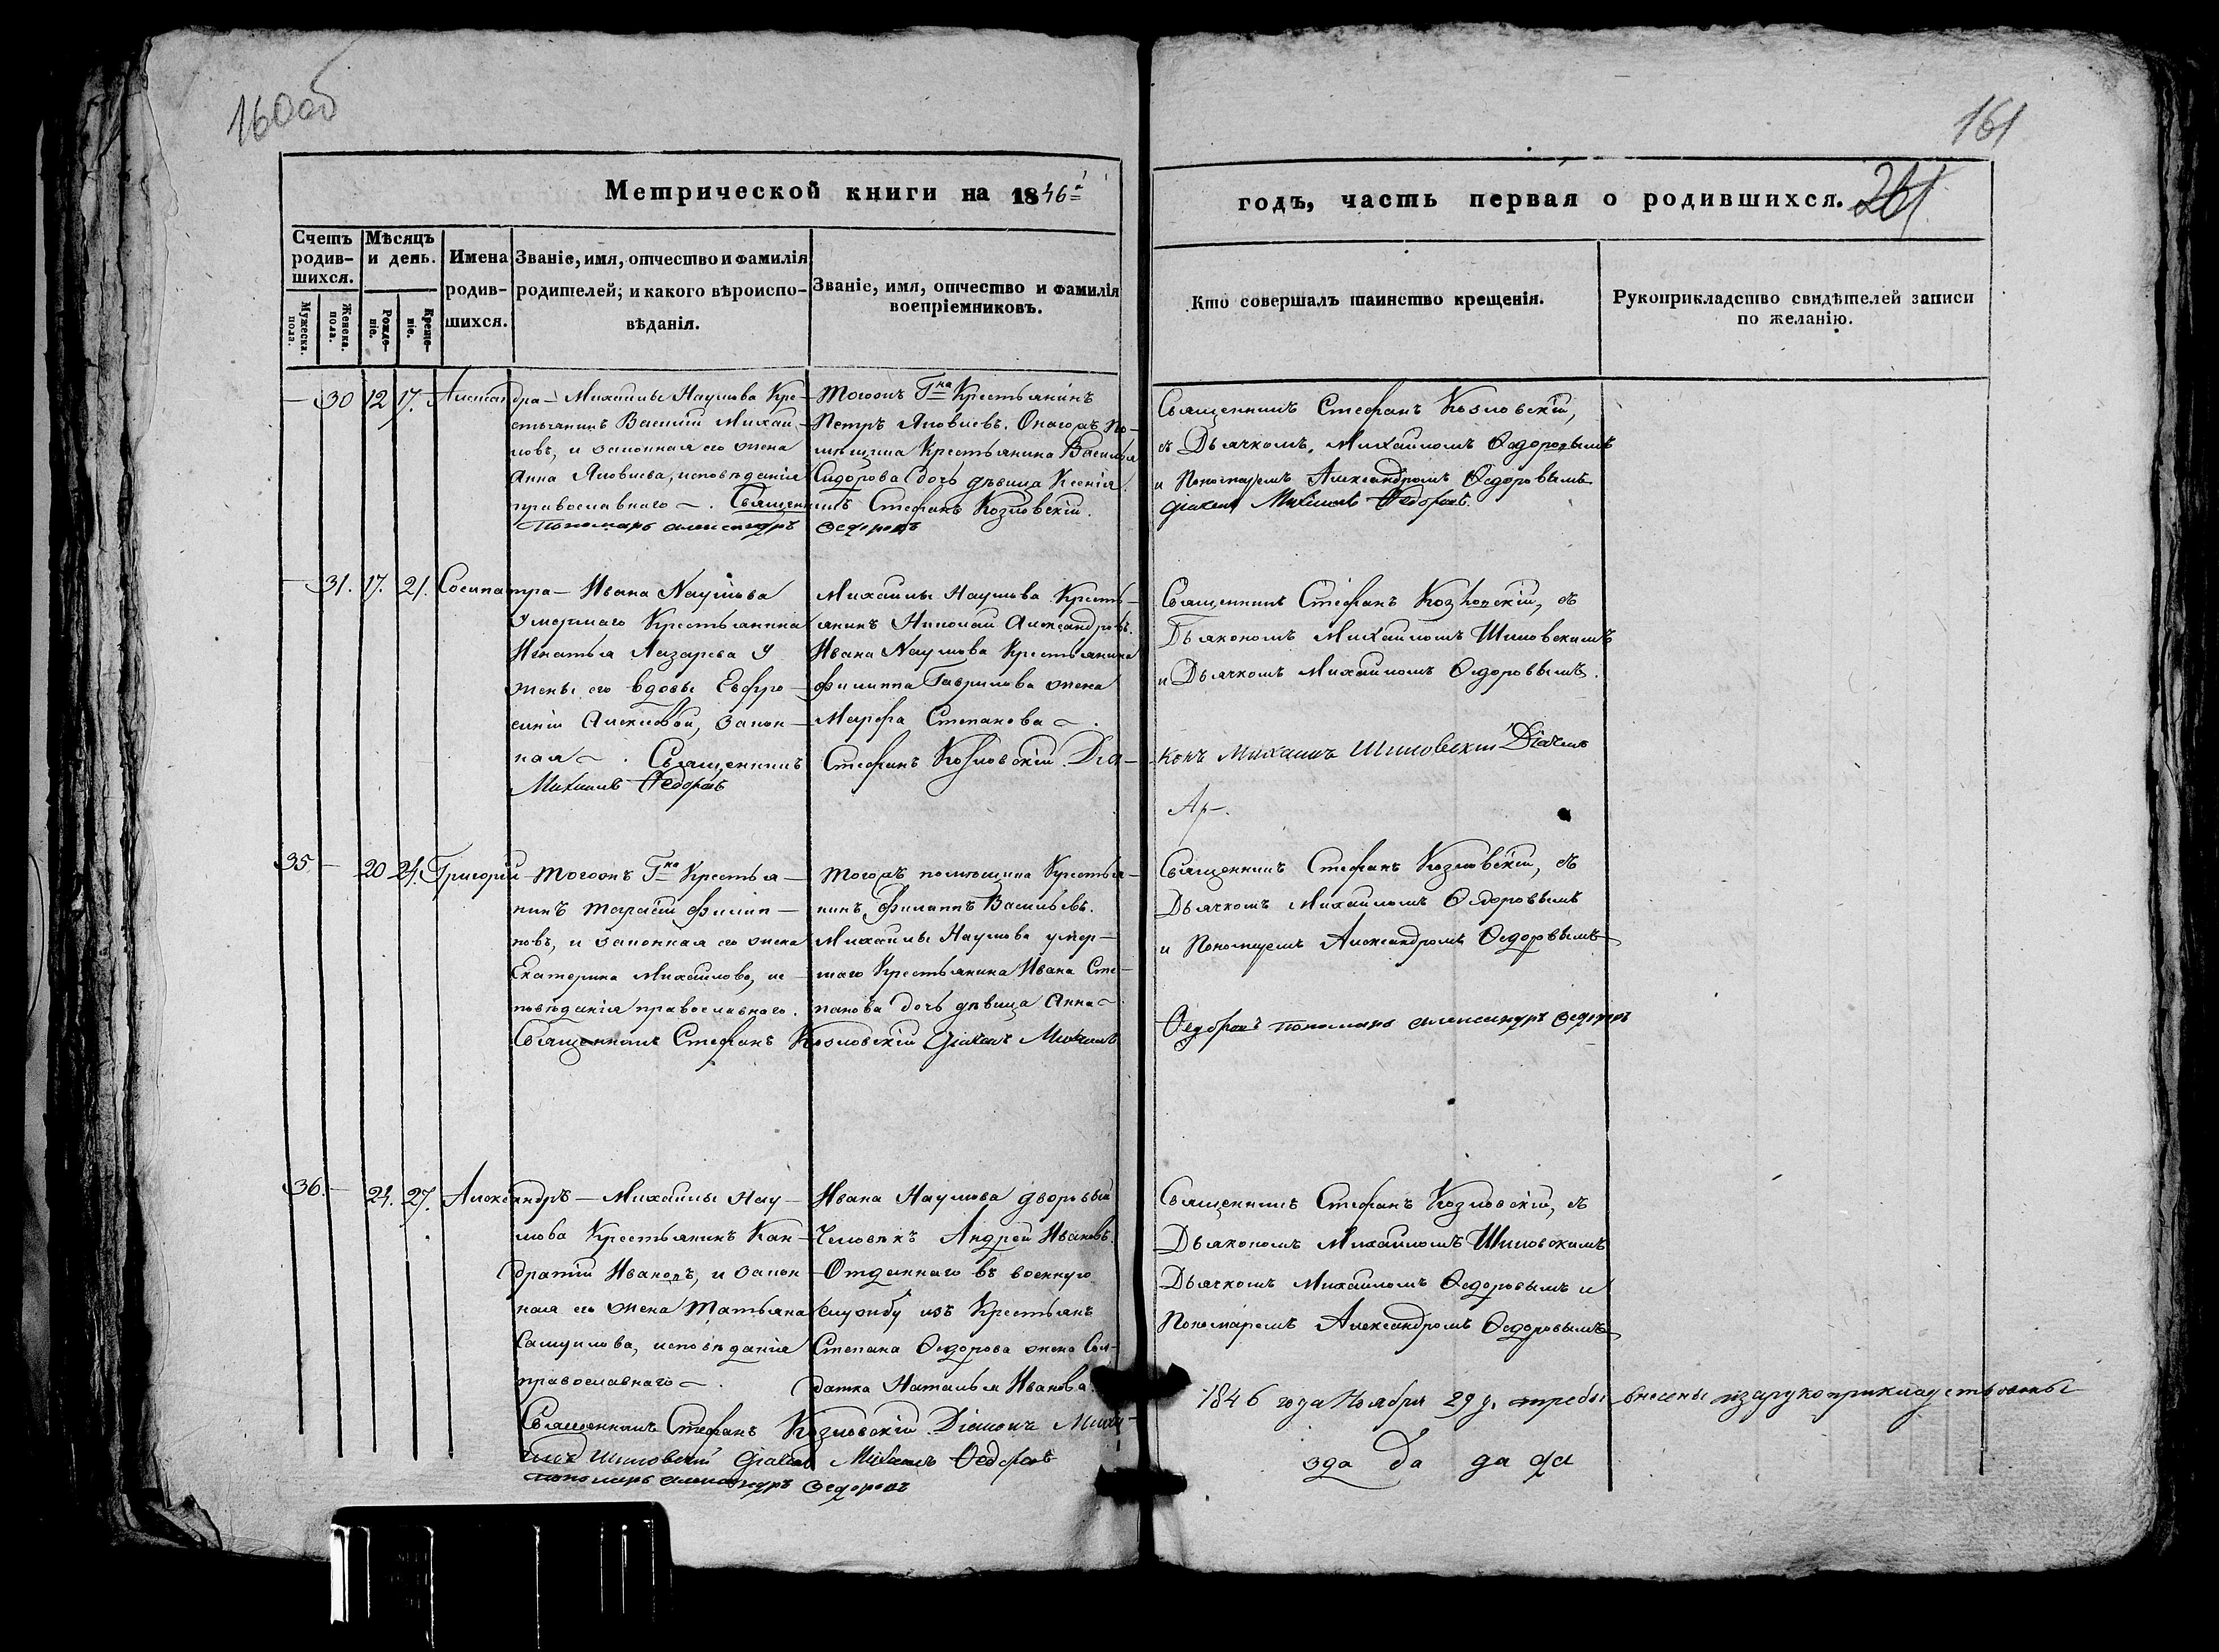 160об
161
Метрической книги на 1846й
годъ, часть первая о родившихся. 261
Счетъ родив-шихся.
Мужеска. пола.
Женска. пола.
Мѣсяцъ и день.
Рожде-ніе.
Креще-ніе.
Имена родив-шихся.
Званіе, имя, отчество и фамилія
родителей; и какого вѣроиспо-
вѣданія.
Званіе, имя, отчество и фамилія
воспріемниковъ.
Кто совершалъ таинство крещенія.
Рукоприкладство свидѣтелей записи
по желанію.
— 30 12 17. Александра — Михайлы Наумова Кре-
стьянинъ Василій Михай-
ловъ, и законная его жена
Анна Яковлева, исповѣданія
православнаго —. Священникъ Стефанъ Козловскій.
Пономарь Александръ Федоровъ
Тогожъ Гна Крестьянинъ
Петръ Яковлевъ. Онагожъ по-
мѣщика Крестьянина Василья
Сидорова дочь дѣвица Ксенія.
Священникъ Стефанъ Козловскій,
съ Дьячкомъ Михайломъ Ѳедоровымъ
и Пономаремъ Александромъ Ѳедоровымъ
Дiячекъ Михаилъ Ѳедоровъ
— 31. 17. 21. Сосипатра — Ивана Наумова
умершаго Крестьянина
Игнатья Лазарева у
жены его вдовы Евфро-
синіи Алексѣевой, закон-
ная —. Священникъ Стефанъ Козловскій. Діа-
Михаилъ Ѳедоровъ
Михайлы Наумова Кресть-
янинъ Николай Александровъ.
Ивана Наумова Крестьянина
Филиппа Гаврилова жена
Марфа Степанова —.
Священникъ Стефанъ Козловскій, съ
Дьякономъ Михайломъ Шиловскимъ
и Дьячкомъ Михайломъ Ѳедоровымъ.
конъ Михаилъ Шиловскій Дiячекъ
35 — 20 24. Григорій — Тогожъ Гна Крестья-
нинъ Тарасій Филип-
повъ, и законная его жена
Екатерина Михайлова, ис-
повѣданія православнаго.
Священникъ Стефанъ Козловскій Дiячекъ Михаилъ
Тогожъ помѣщика Крестья-
нинъ, Филиппъ Васильевъ.
Михайлы Наумова умер-
шаго Крестьянина Ивана Сте-
панова дочь дѣвица Анна —
Священникъ Стефанъ Козловскій, съ
Дьячкомъ Михайломъ Ѳедоровымъ
и Пономаремъ Александромъ Ѳедоровымъ
Ѳедоровъ Пономарь Александръ Федоровъ
36. — 24. 27. Александръ — Михайлы Нау-
мова Крестьянинъ Кон-
дратій Ивановъ, и закон-
ная его жена Татьяна
Самуилова, исповѣданія
православнаго —.
Священникъ Стефанъ Козловскій. Діаконъ Миха-
илъ Шиловскій Дiячекъ Михаилъ Ѳедоровъ
пономарь Александръ Федоровъ
Ивана Наумова дворовый
Человѣкъ Андрей Ивановъ.
Отданнаго въ военную
службу изъ Крестьянъ
Степана Ѳедорова жена Сол-
датка Наталья Иванова.
Священникъ Стефанъ Козловскій, съ
Дьякономъ Михайломъ Шиловскимъ
Дьячкомъ Михайломъ Ѳедоровымъ и
Пономаремъ Александромъ Ѳедоровымъ
1846 года Ноября 29 д. требы внесены